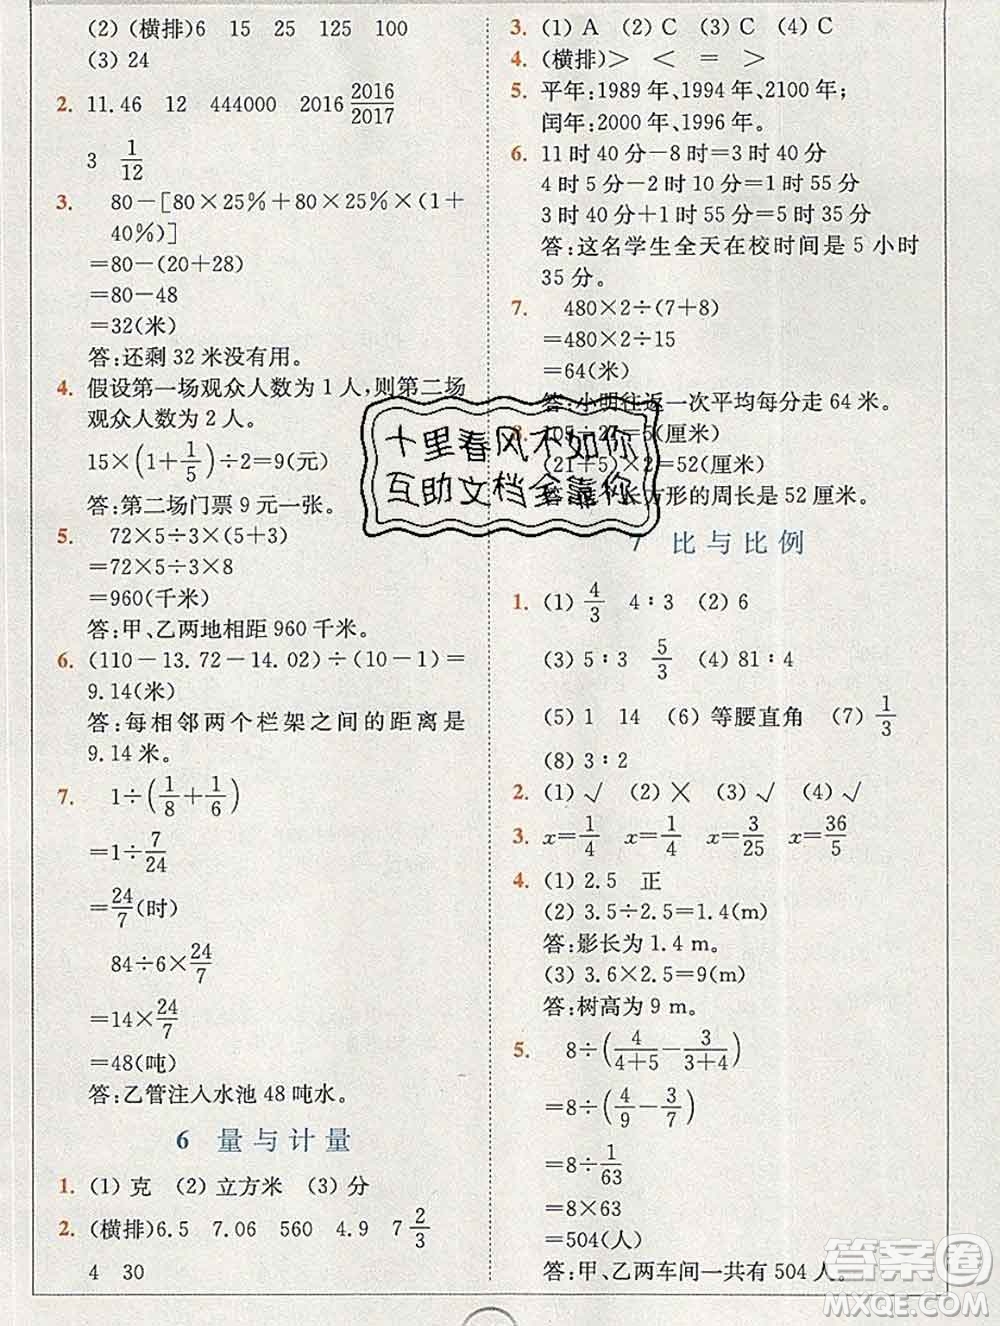 (2) (横排)6 15 25 125 100
(3) 24
2. 11.46 12 444000 2016 2016/2017
3 1/12
3. 80－[80×25%＋80×25%×(1＋
40%)]
＝80－(20＋28)
＝80－48
＝32(米)
答:还剩 32 米没有用。
4. 假设第一场观众人数为 1 人,则第二场
观众人数为 2 人。
15×(1＋1/5)÷2＝9(元)
答:第二场门票 9 元一张。
5. 72×5÷3×(5＋3)
＝72×5÷3×8
＝960(千米)
答:甲、乙两地相距 960 千米。
6. (110－13.72－14.02)÷(10－1)＝
9.14(米)
答:每相邻两个栏架之间的距离是
9.14 米。
7. 1÷(1/8＋1/6)
＝1÷7/24
＝24/7(时)
84÷6×24/7
＝14×24/7
＝48(吨)
答:乙管注入水池 48 吨水。
6 量与计量
1. (1) 克 (2) 立方米 (3) 分
2. (横排)6.5 7.06 560 4.9 7 2/3
4 30
3. (1) A (2) C (3) C (4) C
4. (横排)＞ ＜ ＝ ＞
5. 平年:1989 年、1994 年、2100 年;
闰年:2000 年、1996 年。
6. 11 时 40 分－8 时＝3 时 40 分
4 时 5 分－2 时 10 分＝1 时 55 分
3 时 40 分＋1 时 55 分＝5 时 35 分
答:这名学生全天在校时间是 5 小时
35 分。
7. 480×2÷(7＋8)
＝480×2÷15
＝64(米)
答:小明往返一次平均每分走 64 米。
(厘米)
(21＋5)×2＝52(厘米)
长方形的周长是 52 厘米。
十里春风不如你
互助文档全靠你
7 比与比例
1. (1) 4/3 4∶3 (2) 6
(3) 5∶3 5/3 (4) 81∶4
(5) 1 14 (6) 等腰直角 (7) 1/3
(8) 3∶2
2. (1) √ (2) × (3) √ (4) √
3. x＝1/4 x＝1/4 x＝3/25 x＝36/5
4. (1) 2.5 正
(2) 3.5÷2.5＝1.4(m)
答:影长为 1.4 m。
(3) 3.6×2.5＝9(m)
答:树高为 9 m。
5. 8÷(4/(4＋5)－3/(3＋4))
＝8÷(4/9－3/7)
＝8÷1/63
＝8×63
＝504(人)
答:甲、乙两车间一共有 504 人。
答案圈
MXQE.COM